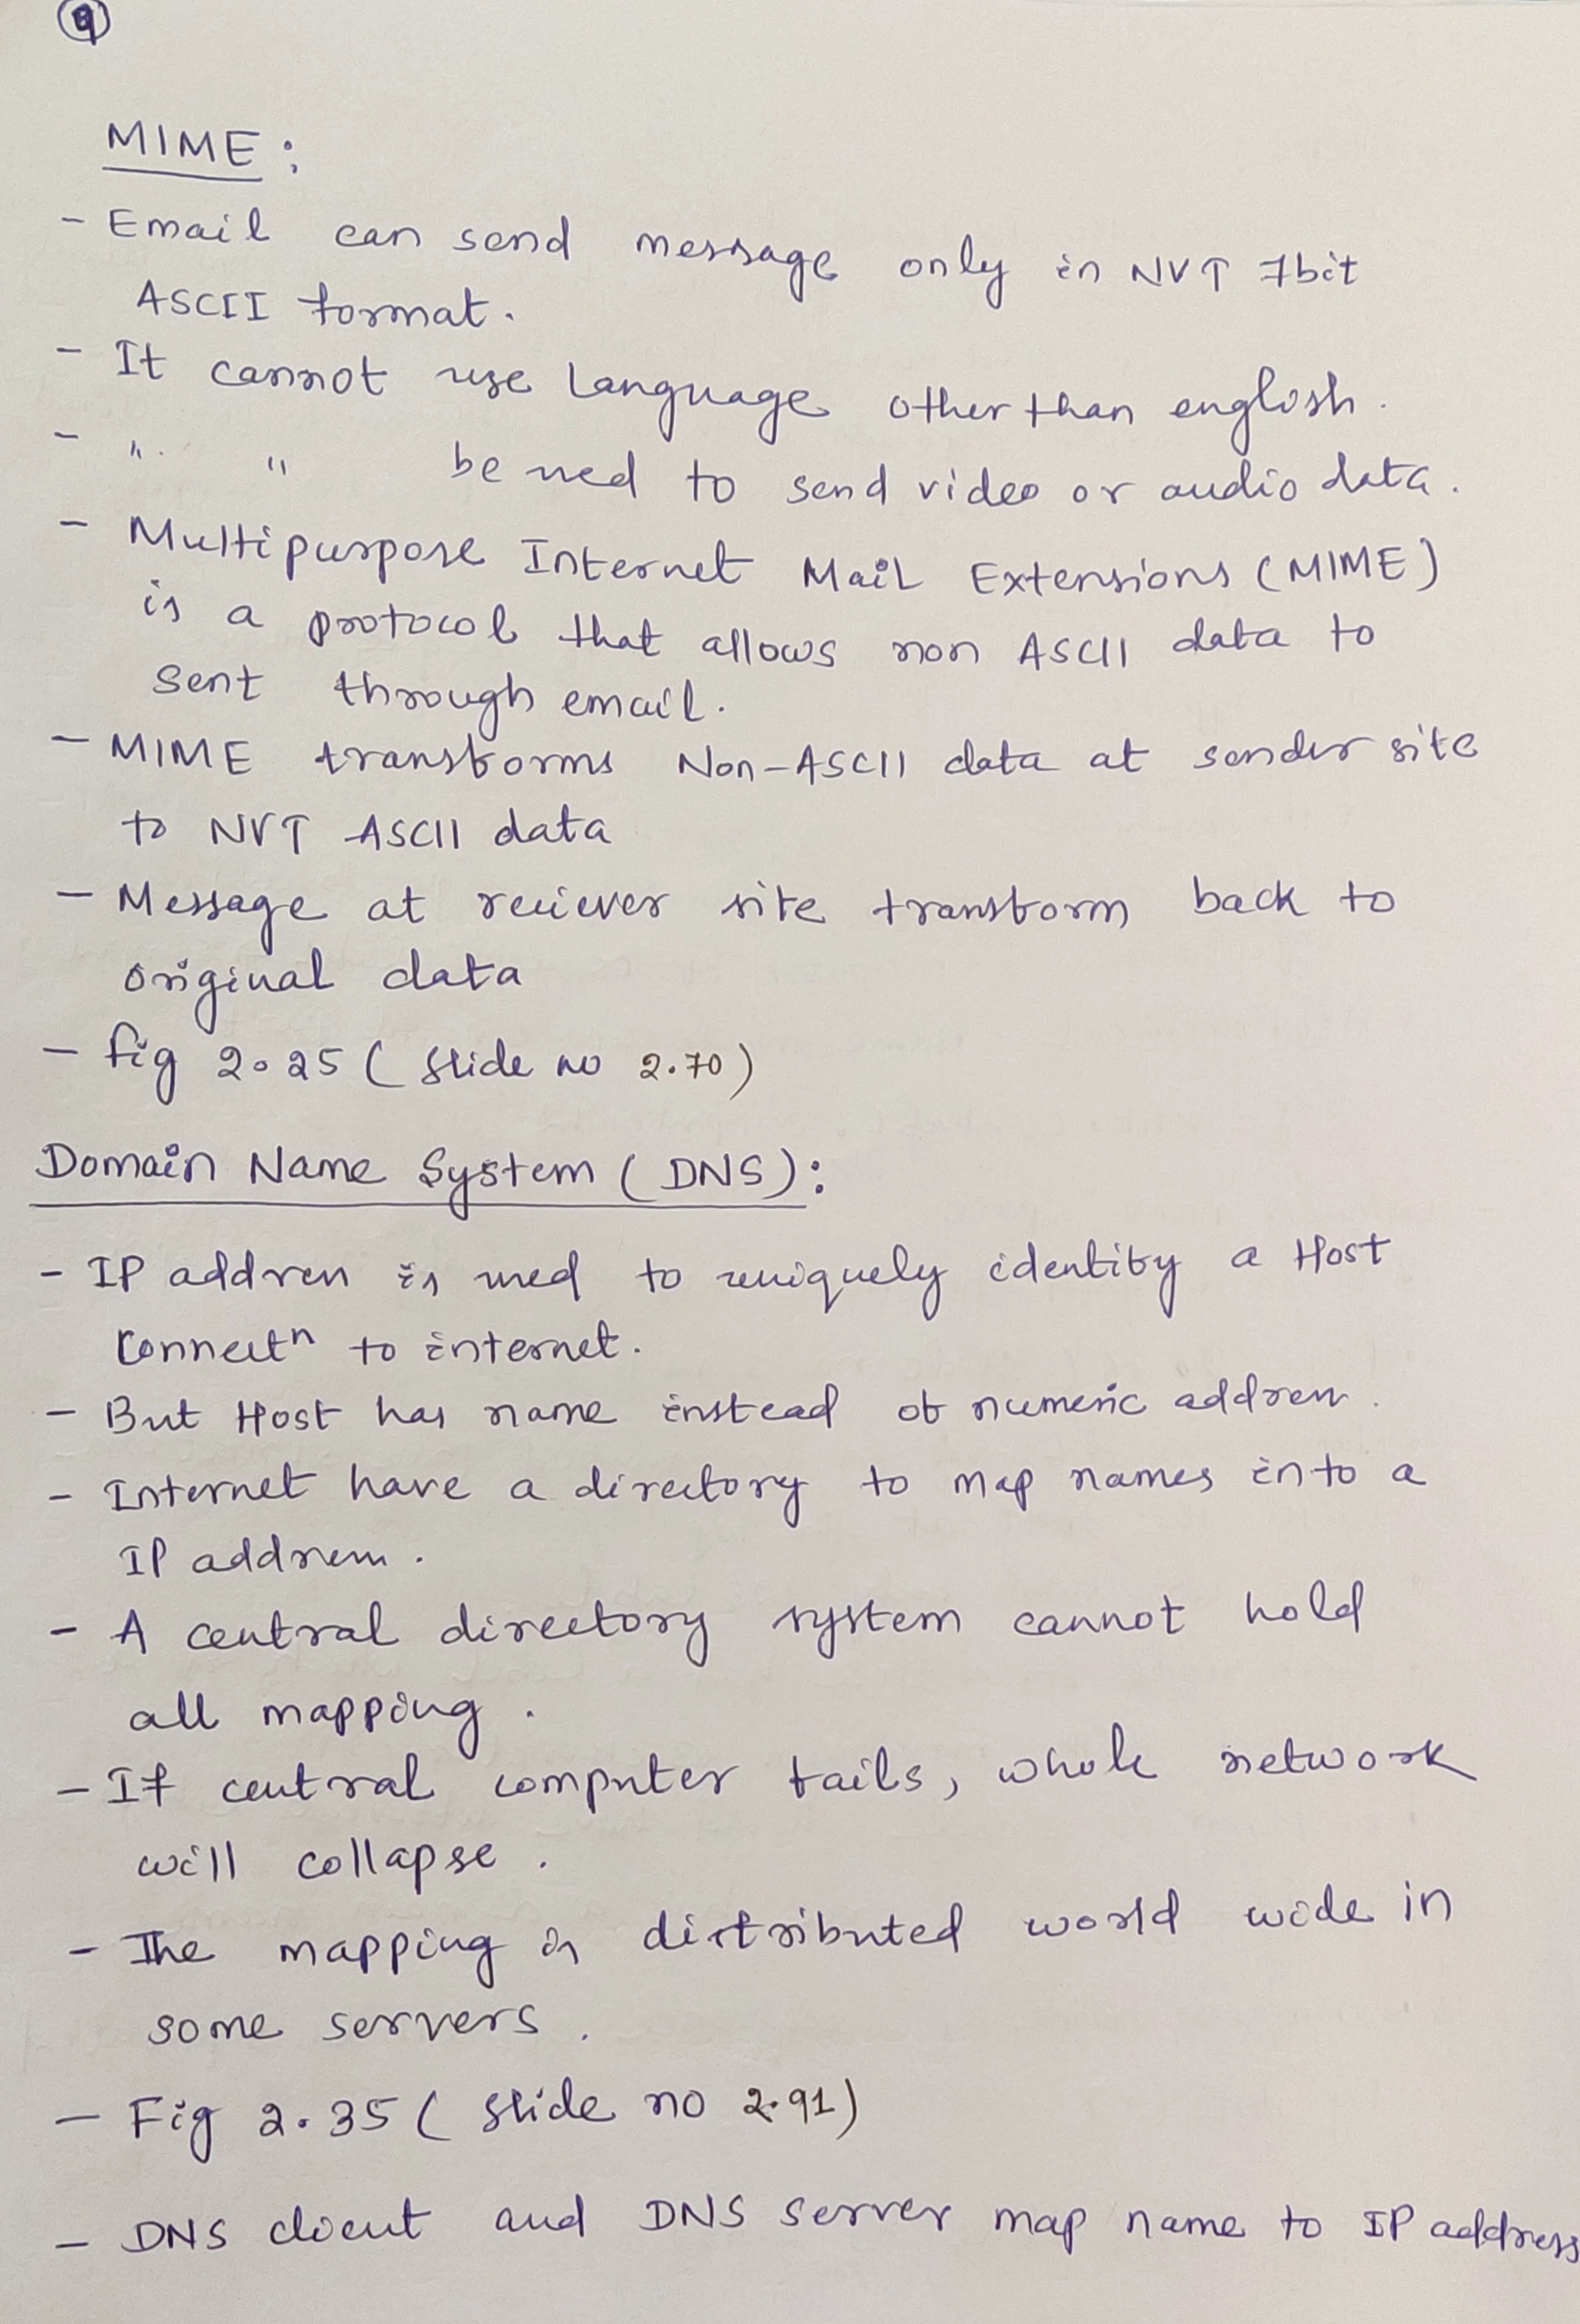 9
MIME :
- Email can send message only in NVT 7bit
ASCII format.
- It cannot use language other than english.
- " " be used to send video or audio data.
- Multipurpose Internet Mail Extensions (MIME)
is a protocol that allows non ASCII data to
sent through email.
- MIME transforms Non-ASCII data at sender site
to NVT ASCII data
- Message at reciever site transform back to
original data
- fig 2.25 ( slide no 2.70)
Domain Name System ( DNS ) :
- IP address is used to uniquely identify a Host
connectⁿ to internet.
- But Host has name instead of numeric address.
- Internet have a directory to map names into a
IP address.
- A central directory system cannot hold
all mapping.
- If central computer fails, whole network
will collapse.
- The mapping is distributed world wide in
some servers.
- Fig 2.35 ( slide no 2.91)
- DNS client and DNS server map name to IP address